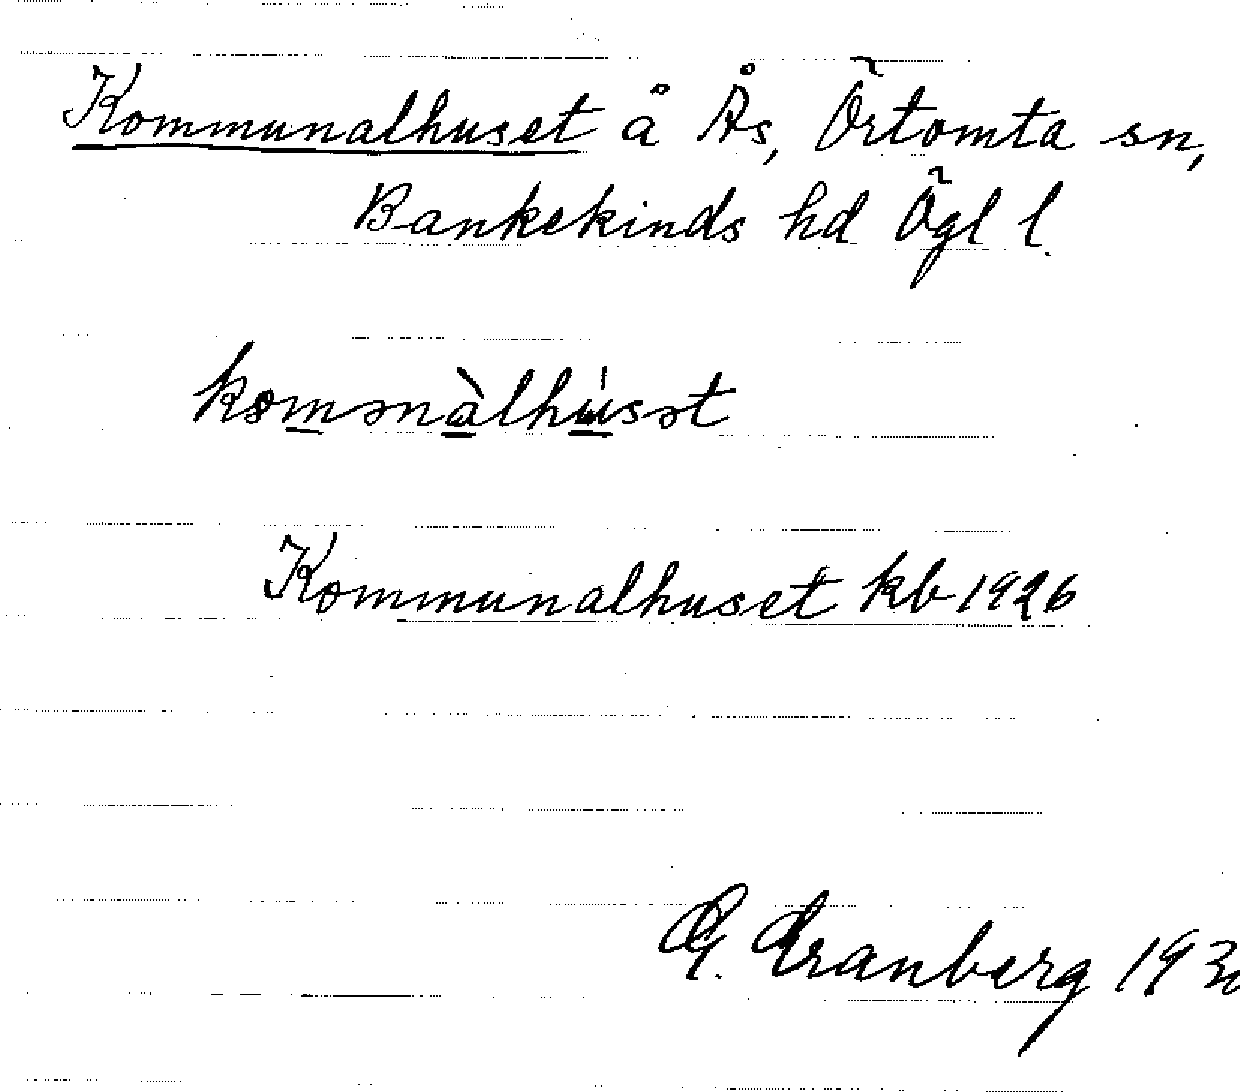 Kommunalhuset å Ås, Örtomta sn,
Bankekinds hd Ögl l.
komənàlhúsət
Kommunalhuset kb 1926
G. Granberg 193